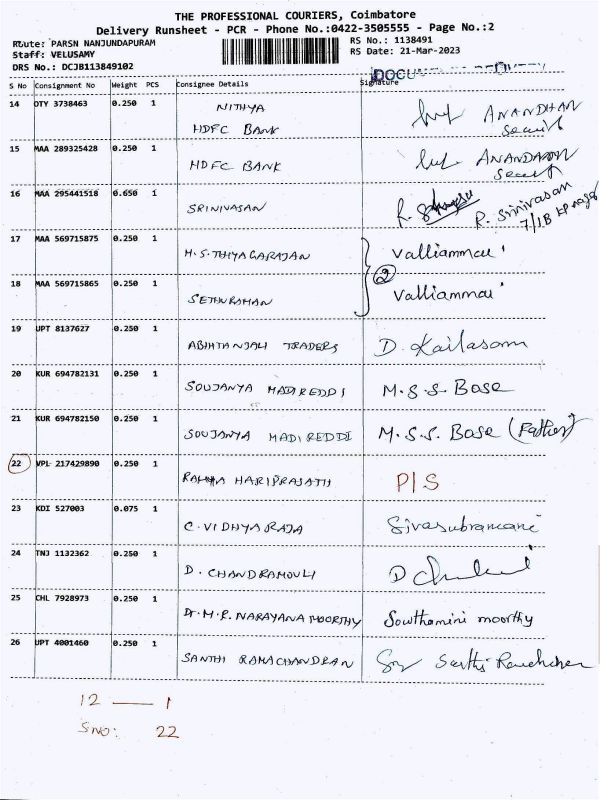 THE PROFESSIONAL COURIERS, Coimbatore
Delivery Runsheet - PCR - Phone No.:0422-3505555 - Page No.:2
Route: PARSN NANJUNDAPURAM
RS No.: 1138491
Staff: VELUSAMY
RS Date: 21-Mar-2023
DRS No.: DCJB113849102
S No Consignment No Weight PCS Consignee Details Signature
14 DTY 3738463 0.250 1 NITHYA ANANDHAN
HDFC BANK
15 MAA 289325428 0.250 1 HDFC BANK ANANDHAN
16 MAA 295441518 0.650 1 SRINIVASAN R. Srinivasan
7/1B
17 MAA 569715875 0.250 1 H.S.THIYAGARAJAN Valliammai
2
18 MAA 569715865 0.250 1 SETHURAMAN Valliammai
19 UPT 8137627 0.250 1 TRADERS D. Kailasam
20 KUR 694782131 0.250 1 SOUJANYA MADIREDDI M.S.S. Bose
21 KUR 694782150 0.250 1 SOUJANYA MADIREDDI M.S.S. Bose (Father)
22 VPL 217429890 0.250 1 HARIPRASATH P/S
23 KDI 527003 0.075 1 C.VIDHYARAJA Sivasubramani
24 TNJ 1132362 0.250 1 D. CHANDRAMOULI
25 CHL 7928973 0.250 1 Dr.M.R.NARAYANA MOORTHY Sowthamini moorthy
26 UPT 4001460 0.250 1 SANTHI RAMACHANDRAN
12 — 1
SNO: 22